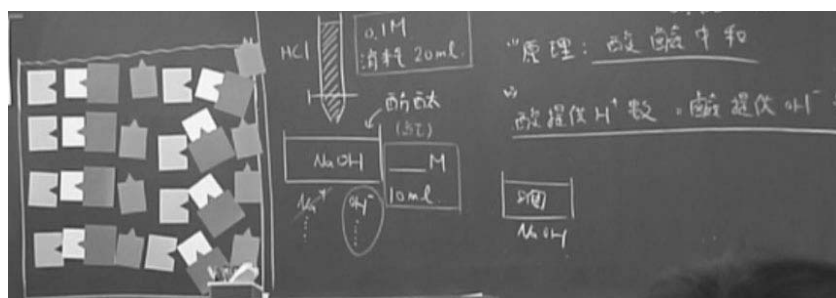 HCl
0.1M
消耗 20ml.
酚酞
NaOH
M
10ml.
Na⁺
OH⁻
原理: 酸鹼中和
酸提供H⁺數 = 鹼提供OH⁻
NaOH